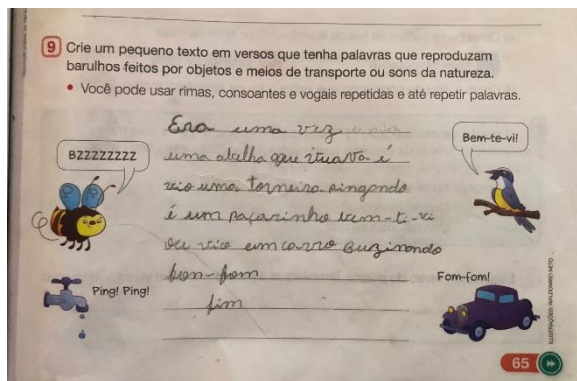 9 Crie um pequeno texto em versos que tenha palavras que reproduzam
barulhos feitos por objetos e meios de transporte ou sons da natureza.
• Você pode usar rimas, consoantes e vogais repetidas e até repetir palavras.
BZZZZZZZZZ
Bem-te-vi!
Era uma vez
uma abelha que
vio uma torneira pingando
é um paçarinho bem-ti-vi
ou vio um carro buzinando
bon-fom
fim
Ping! Ping!
Fom-fom!
ILUSTRAÇÕES: WALDOMIRO NETO
65